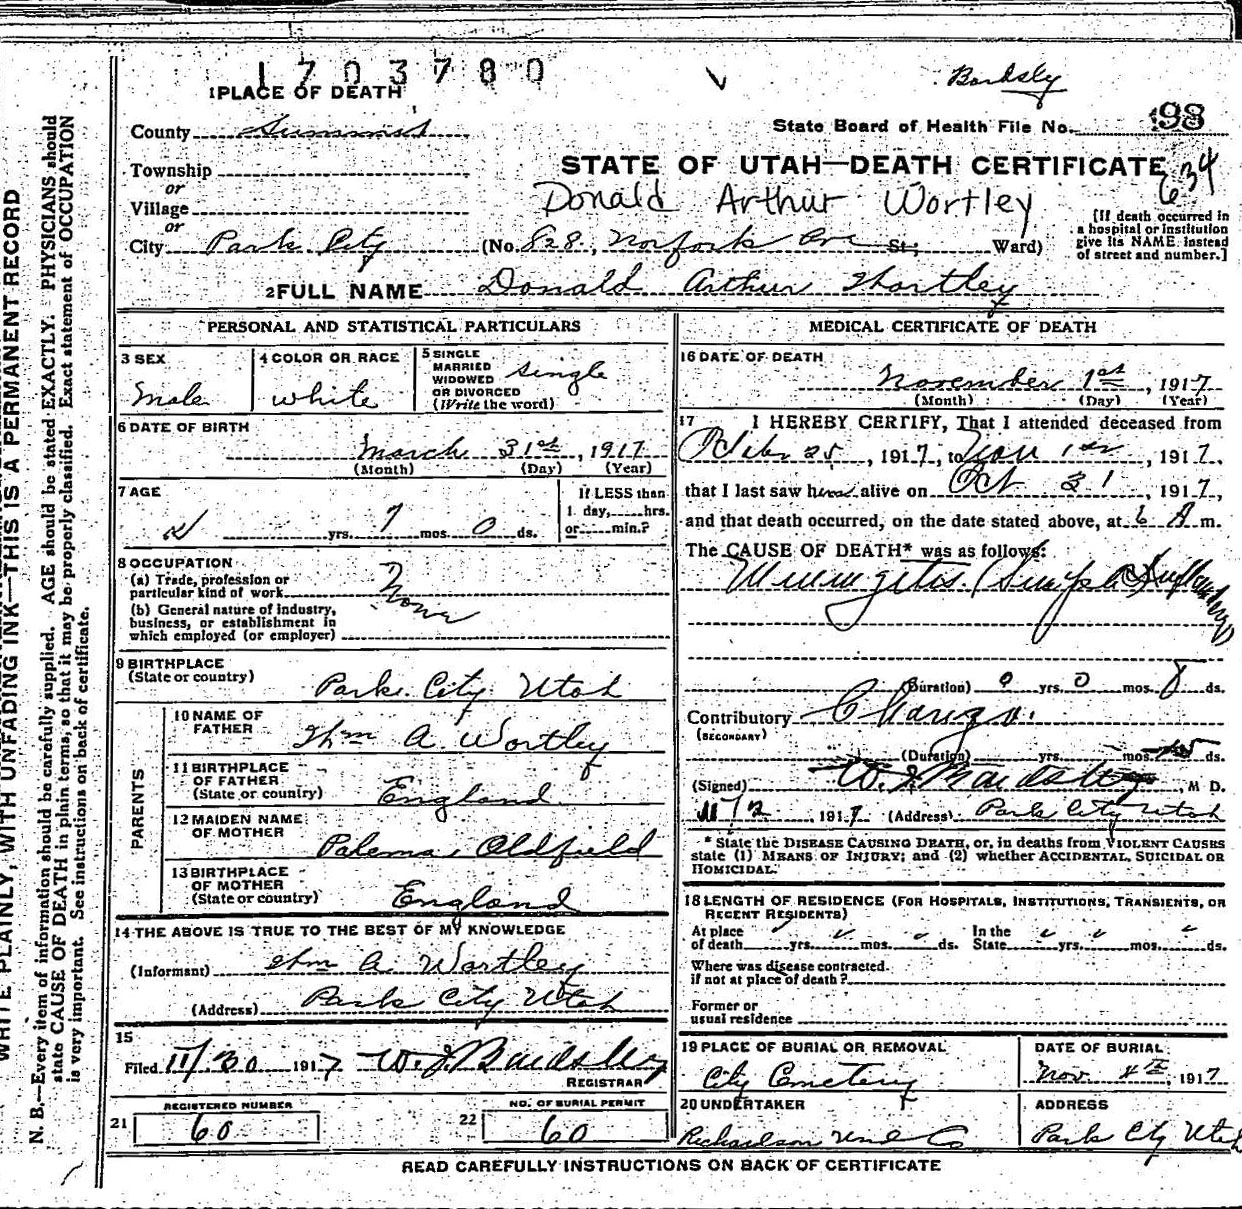 1703780
Bardsly
1 PLACE OF DEATH
County Summit
State Board of Health File No. 98
634
STATE OF UTAH—DEATH CERTIFICATE
Township
or
Village
or
Donald Arthur Wortley
City Park City (No. 828, Norfork Ave St; Ward)
[If death occurred in
a hospital or institution
give its NAME instead
of street and number.]
2 FULL NAME Donald Arthur Wortley
PERSONAL AND STATISTICAL PARTICULARS
3 SEX
Male
4 COLOR OR RACE
white
5 SINGLE
MARRIED
WIDOWED
OR DIVORCED
(Write the word)
single
6 DATE OF BIRTH
March 31st, 1917
(Month) (Day) (Year)
7 AGE
yrs. 7 mos. 0 ds.
If LESS than
1 day, hrs.
or min.?
8 OCCUPATION
(a) Trade, profession or
particular kind of work
None
(b) General nature of industry,
business, or establishment in
which employed (or employer)
9 BIRTHPLACE
(State or country)
Park City Utah
PARENTS
10 NAME OF
FATHER
Thm A Wortley
11 BIRTHPLACE
OF FATHER
(State or country)
England
12 MAIDEN NAME
OF MOTHER
Palema Oldfield
13 BIRTHPLACE
OF MOTHER
(State or country)
England
14 THE ABOVE IS TRUE TO THE BEST OF MY KNOWLEDGE
(Informant) Thm A Wortley
(Address) Park City Utah
15
Filed 11/30 1917 W. J. Bardsley
REGISTRAR
REGISTERED NUMBER
21 60
NO. OF BURIAL PERMIT
22 60
MEDICAL CERTIFICATE OF DEATH
16 DATE OF DEATH
November 1st, 1917
(Month) (Day) (Year)
17 I HEREBY CERTIFY, That I attended deceased from
25, 1917, to Nov 1st, 1917,
that I last saw alive on Oct 31, 1917,
and that death occurred, on the date stated above, at 6 A m.
The CAUSE OF DEATH* was as follows:
Meningitis (Simple
(Duration) 0 yrs. 0 mos. 8 ds.
Contributory
(SECONDARY)
(Duration) yrs. mos. ds.
(Signed) W. J. Bardsley, M D.
11/2, 1917 (Address) Park City Utah
* State the DISEASE CAUSING DEATH, or, in deaths from VIOLENT CAUSES
state (1) MEANS OF INJURY; and (2) whether ACCIDENTAL, SUICIDAL OR
HOMICIDAL.
18 LENGTH OF RESIDENCE (FOR HOSPITALS, INSTITUTIONS, TRANSIENTS, OR
RECENT RESIDENTS)
At place
of death yrs. mos. ds.
In the
State yrs. mos. ds.
Where was disease contracted
if not at place of death?
Former or
usual residence
19 PLACE OF BURIAL OR REMOVAL
City Cemetery
DATE OF BURIAL
Nov. 4th, 1917
20 UNDERTAKER
Richardson Und Co
ADDRESS
Park City Utah
READ CAREFULLY INSTRUCTIONS ON BACK OF CERTIFICATE
WRITE PLAINLY, WITH UNFADING INK—THIS IS A PERMANENT RECORD
N. B.—Every item of information should be carefully supplied. AGE should be stated EXACTLY. PHYSICIANS should
state CAUSE OF DEATH in plain terms, so that it may be properly classified. Exact statement of OCCUPATION
is very important. See instructions on back of certificate.